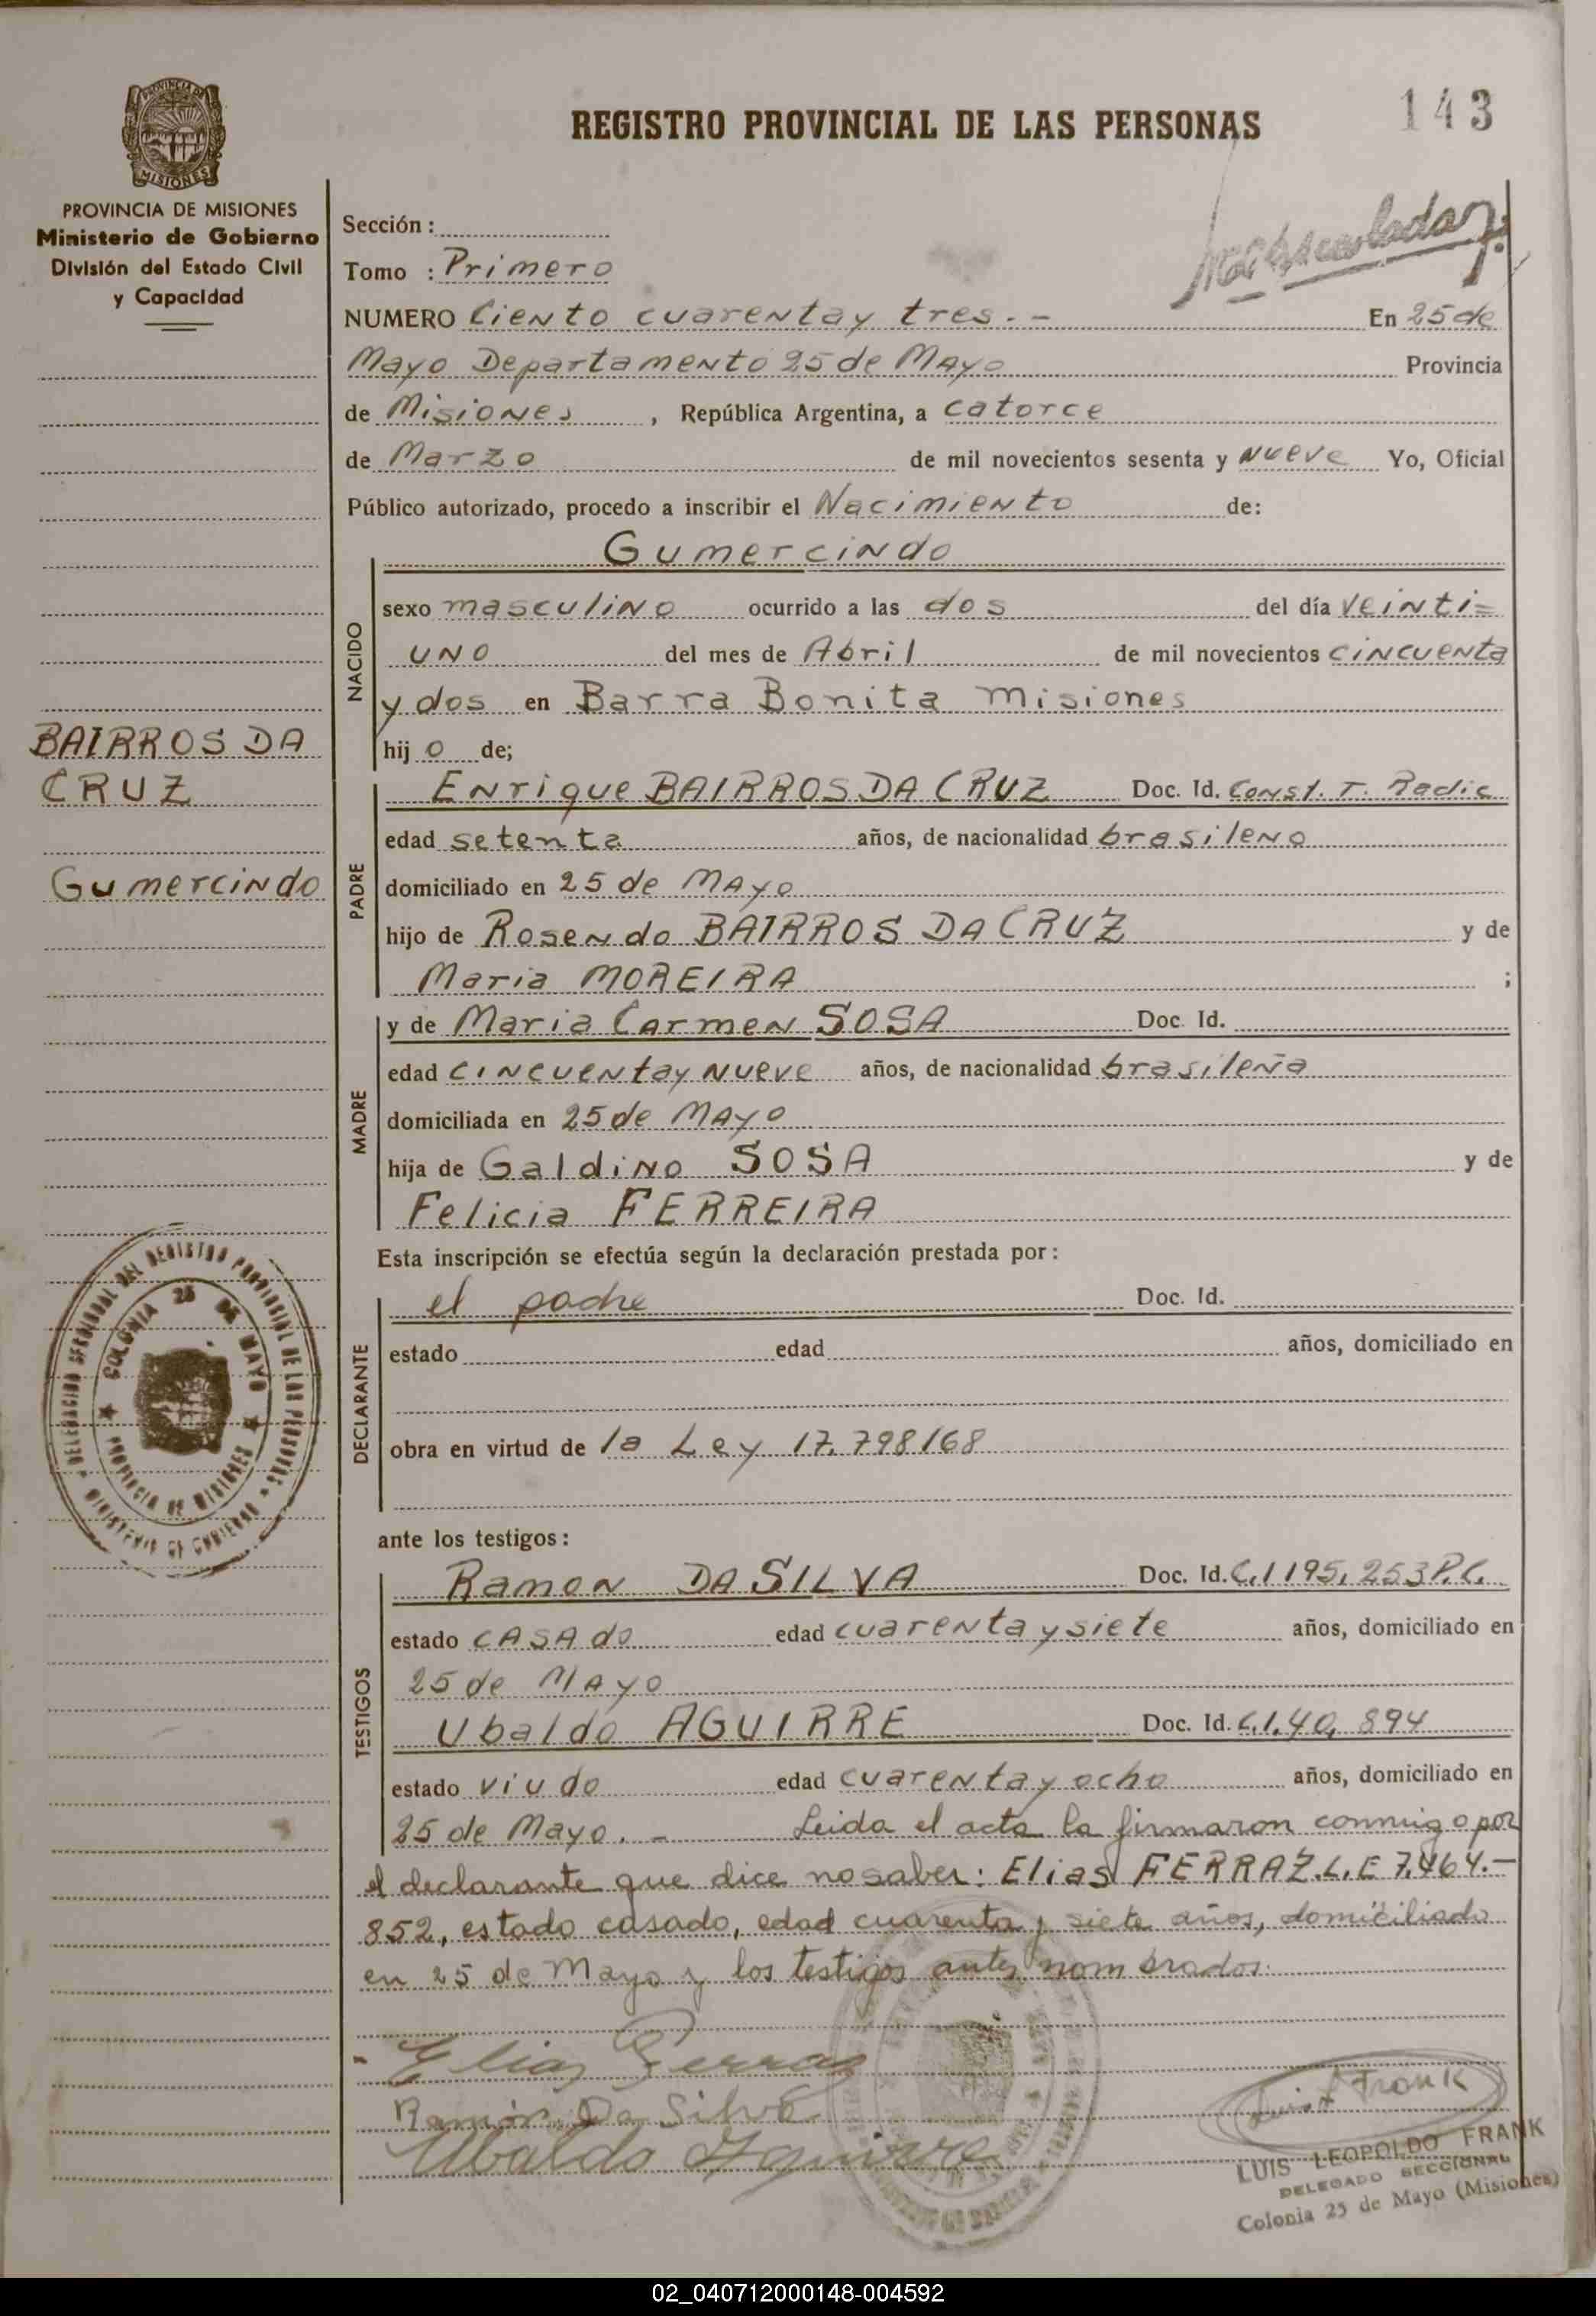 REGISTRO PROVINCIAL DE LAS PERSONAS
143
PROVINCIA DE
MISIONES
PROVINCIA DE MISIONES
Ministerio de Gobierno
División del Estado Civil
y Capacidad
BAIRROS DA
CRUZ
Gumercindo
Sección :
Tomo : Primero
NUMERO Ciento cuarenta y tres.- En 25 de
Mayo Departamento 25 de Mayo Provincia
de Misiones , República Argentina, a catorce
de Marzo de mil novecientos sesenta y nueve Yo, Oficial
Público autorizado, procedo a inscribir el Nacimiento de:
NACIDO
Gumercindo
sexo masculino ocurrido a las dos del día veinti=
uno del mes de Abril de mil novecientos cincuenta
y dos en Barra Bonita Misiones
hij o de;
PADRE
Enrique BAIRROS DA CRUZ Doc. Id. Const. T. Radic
edad setenta años, de nacionalidad brasileno
domiciliado en 25 de Mayo
hijo de Rosendo BAIRROS DA CRUZ y de
Maria MOREIRA ;
MADRE
y de Maria Carmen SOSA Doc. Id.
edad cincuenta y nueve años, de nacionalidad brasileña
domiciliada en 25 de Mayo
hija de Galdino SOSA y de
Felicia FERREIRA
Esta inscripción se efectúa según la declaración prestada por:
DECLARANTE
el padre Doc. Id.
estado edad años, domiciliado en
obra en virtud de la Ley 17.798/68
ante los testigos:
TESTIGOS
Ramon DA SILVA Doc. Id. C.I 195.253 P.C.
estado casado edad cuarenta y siete años, domiciliado en
25 de Mayo
Ubaldo AGUIRRE Doc. Id. C.I. 40.894
estado viudo edad cuarenta y ocho años, domiciliado en
25 de Mayo. - Leida el acta la firmaron conmigo por
el declarante que dice no saber: Elias FERRAZ. L.E 7.464.-
852, estado casado, edad cuarenta y siete años, domiciliado
en 25 de Mayo y los testigos antes nombrados.
Elias Ferraz
Ramón Da Silva
Ubaldo Aguirre
Luis L Frank
LUIS LEOPOLDO FRANK
DELEGADO SECCIONAL
Colonia 25 de Mayo (Misiones)
DELEGACION SECCIONAL DEL REGISTRO PROVINCIAL DE LAS PERSONAS
MINISTERIO DE GOBIERNO
COLONIA 25 DE MAYO
PROVINCIA DE MISIONES
02_040712000148-004592